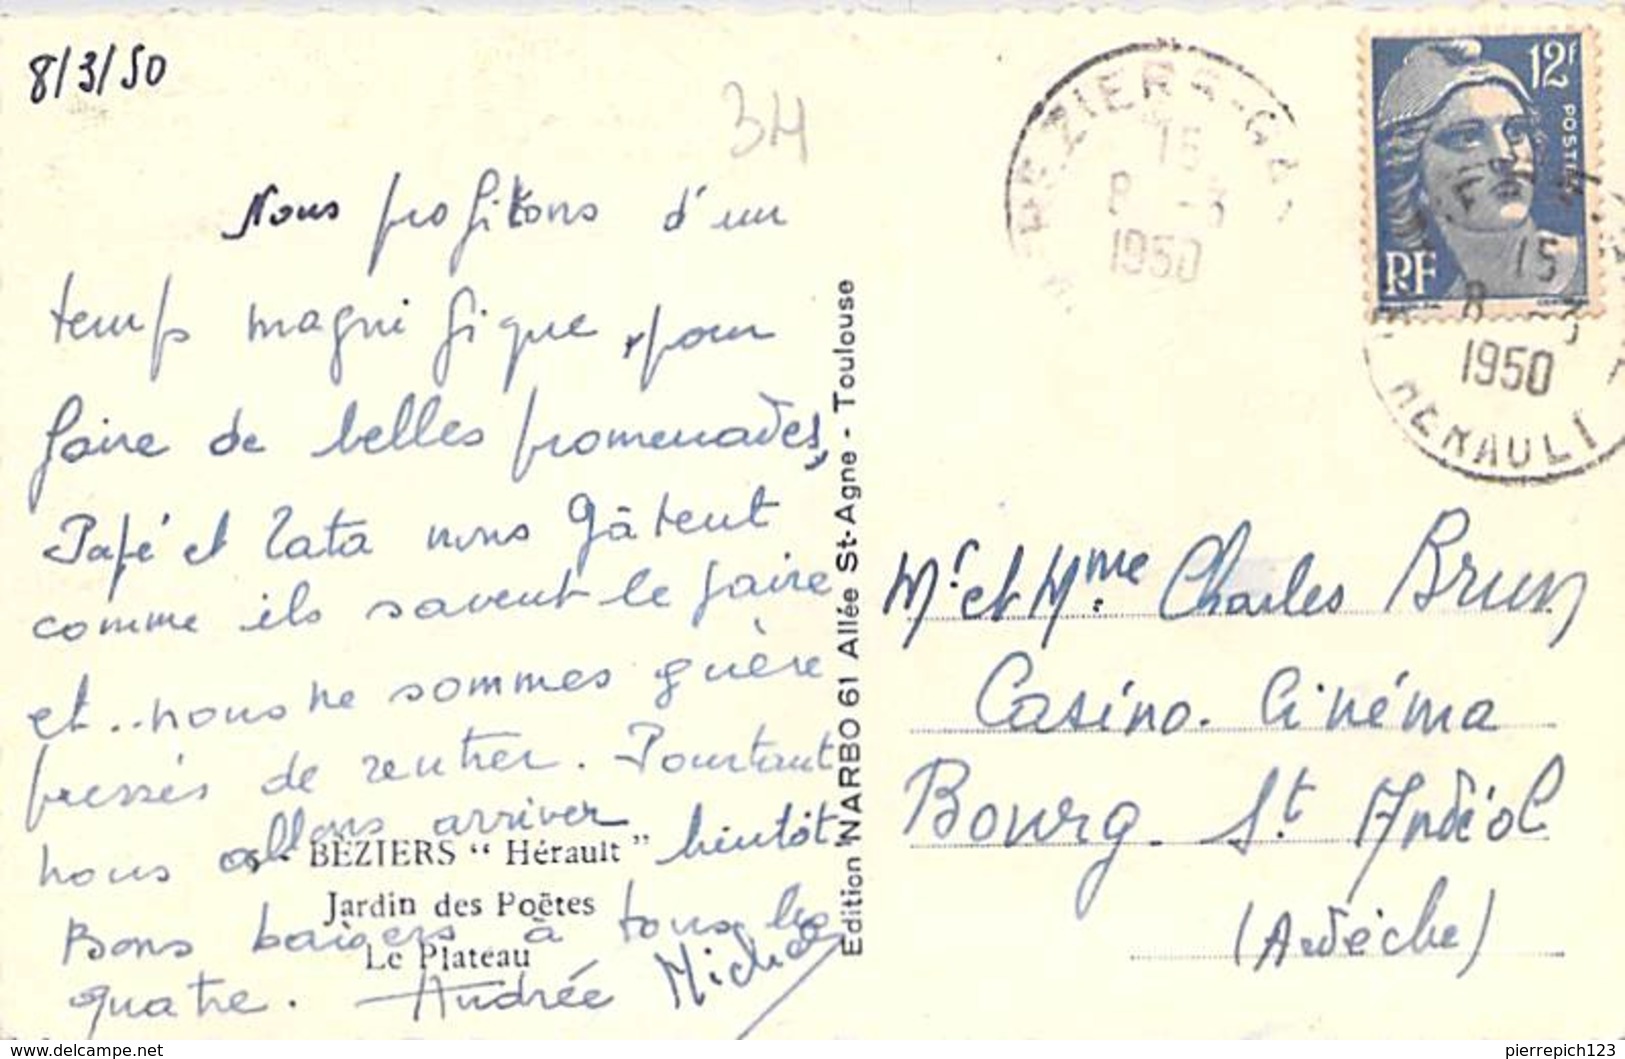 8/3/50
34
Nous profitons d'un
temps magnifique, pour
faire de belles promenades,
Papé et Tata nous gâtent
comme ils savent le faire
et.. nous ne sommes guère
pressés de rentrer. Pourtant
nous allons arriver bientôt
BÉZIERS " Hérault "
Jardin des Poëtes
Bons baisers à tous les
Le Plateau
quatre. Andrée Michel
Edition NARBO 61 Allée St-Agne - Toulouse
BEZIERS-GARE
15
8 -3
1950
12F
POSTES
RF
15
8 -3
1950
HERAULT
Mr. et Mme. Charles Brun
Casino. Cinéma
Bourg. St. Andéol
(Ardèche)
pierrepich123